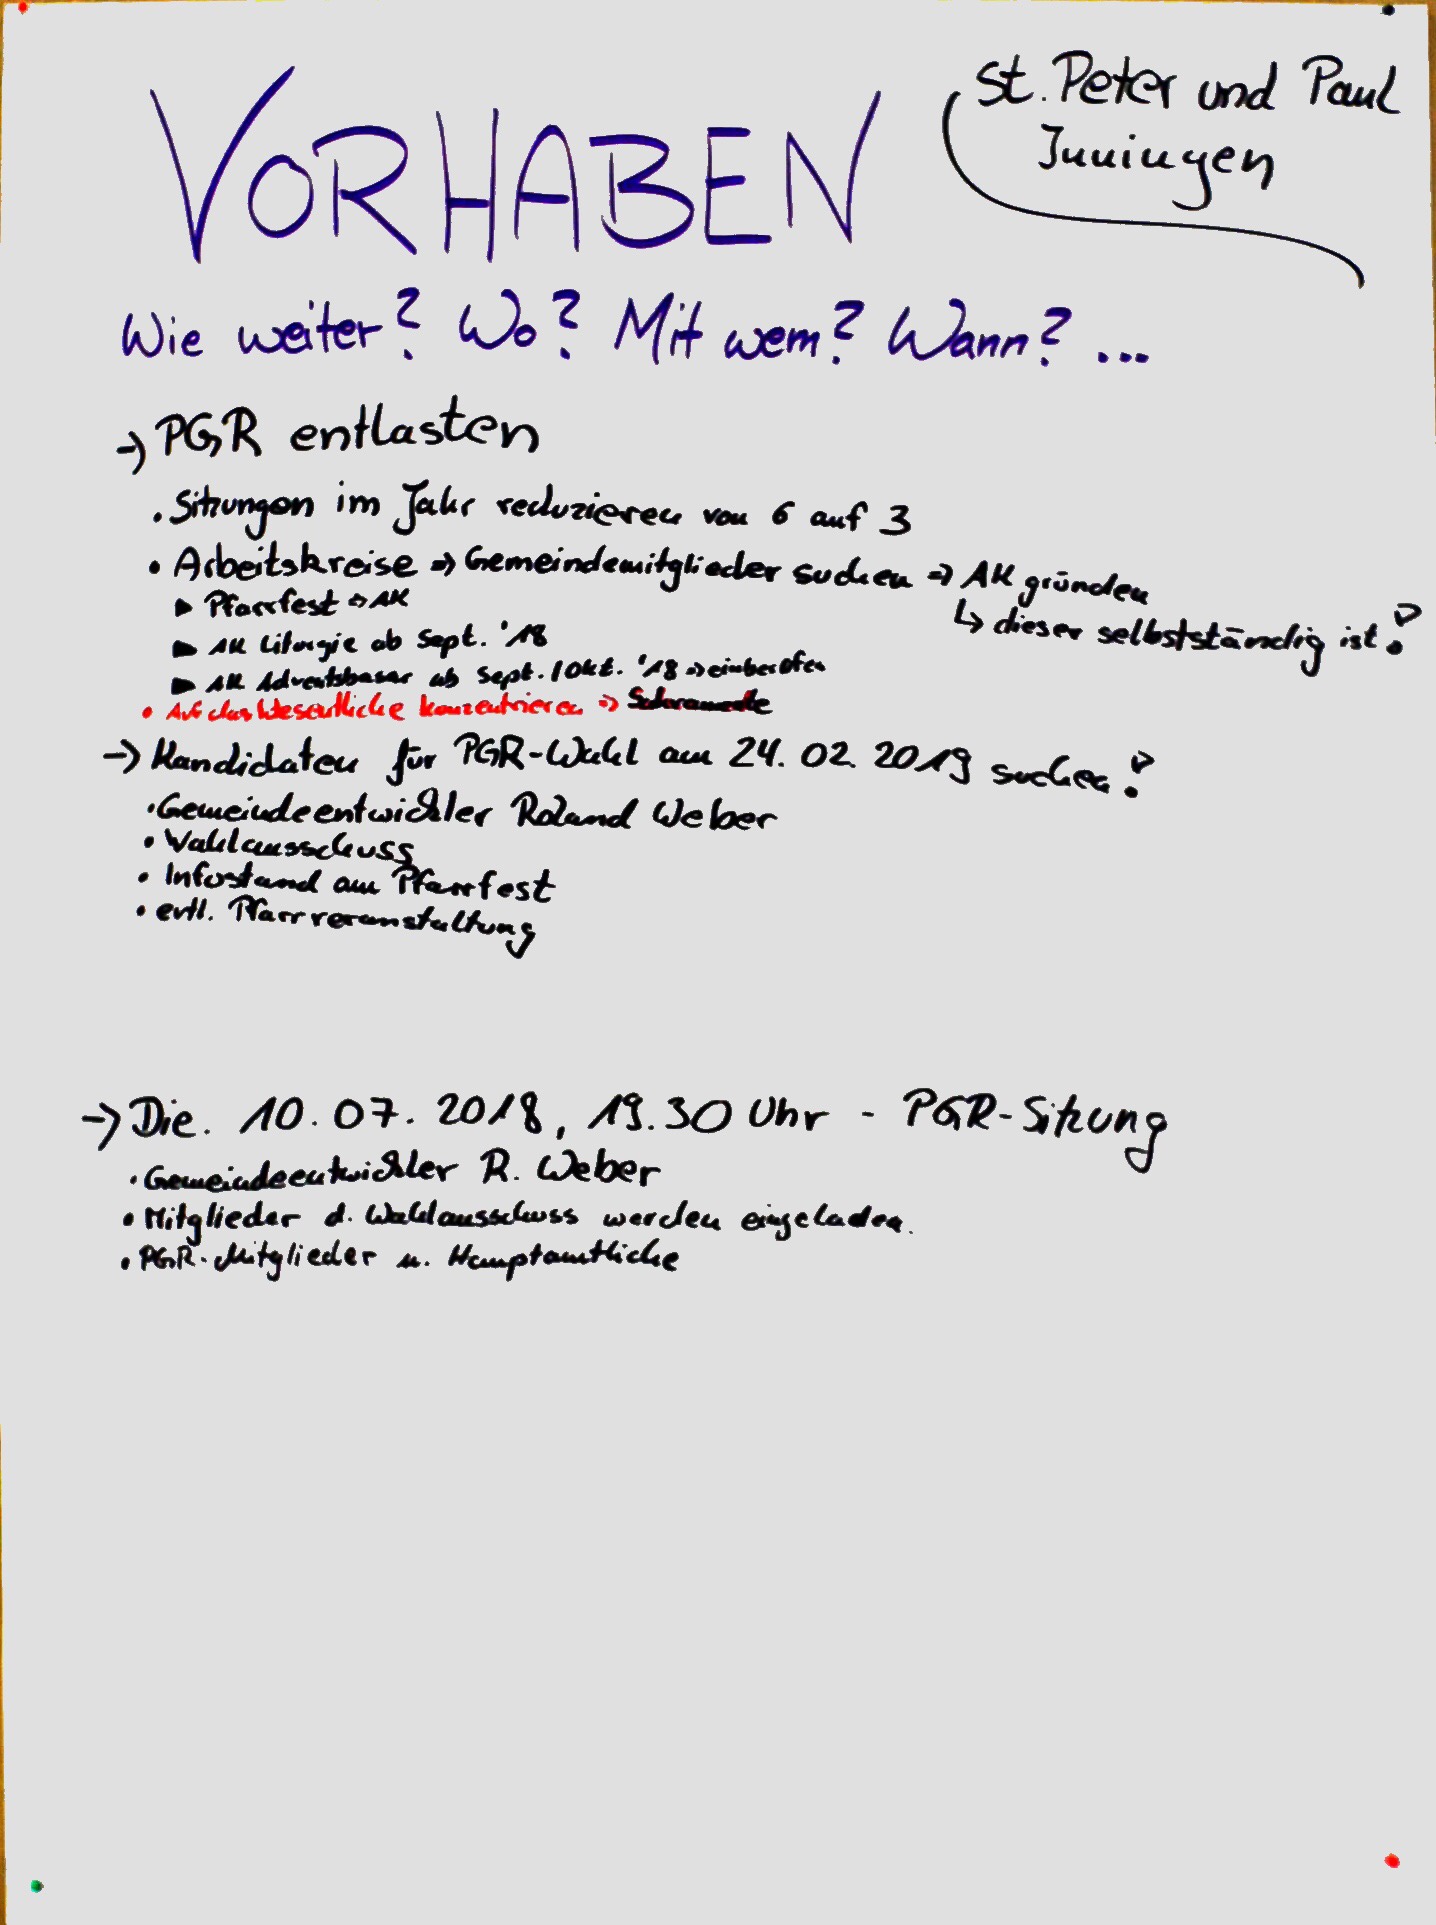 St. Peter und Paul
Inningen
VORHABEN
Wie weiter? Wo? Mit wem? Wann? ...
→ PGR entlasten
• Sitzungen im Jahr reduzieren von 6 auf 3
• Arbeitskreise ⇒ Gemeindemitglieder suchen ⇒ AK gründen
↳ dieser selbstständig ist!
▶ Pfarrfest ⇒ AK
▶ AK Liturgie ab Sept. '18
▶ AK Adventsbasar ab Sept. / Okt. '18 ⇒ einberufen
• Auf das Wesentliche konzentrieren ⇒ Sakramente
→ Kandidaten für PGR-Wahl am 24.02.2019 suchen!
• Gemeindeentwickler Roland Weber
• Wahlausschuss
• Infostand am Pfarrfest
• evtl. Pfarrveranstaltung
→ Die. 10.07.2018, 19.30 Uhr - PGR-Sitzung
• Gemeindeentwickler R. Weber
• Mitglieder d. Wahlausschuss werden eingeladen.
• PGR-Mitglieder u. Hauptamtliche